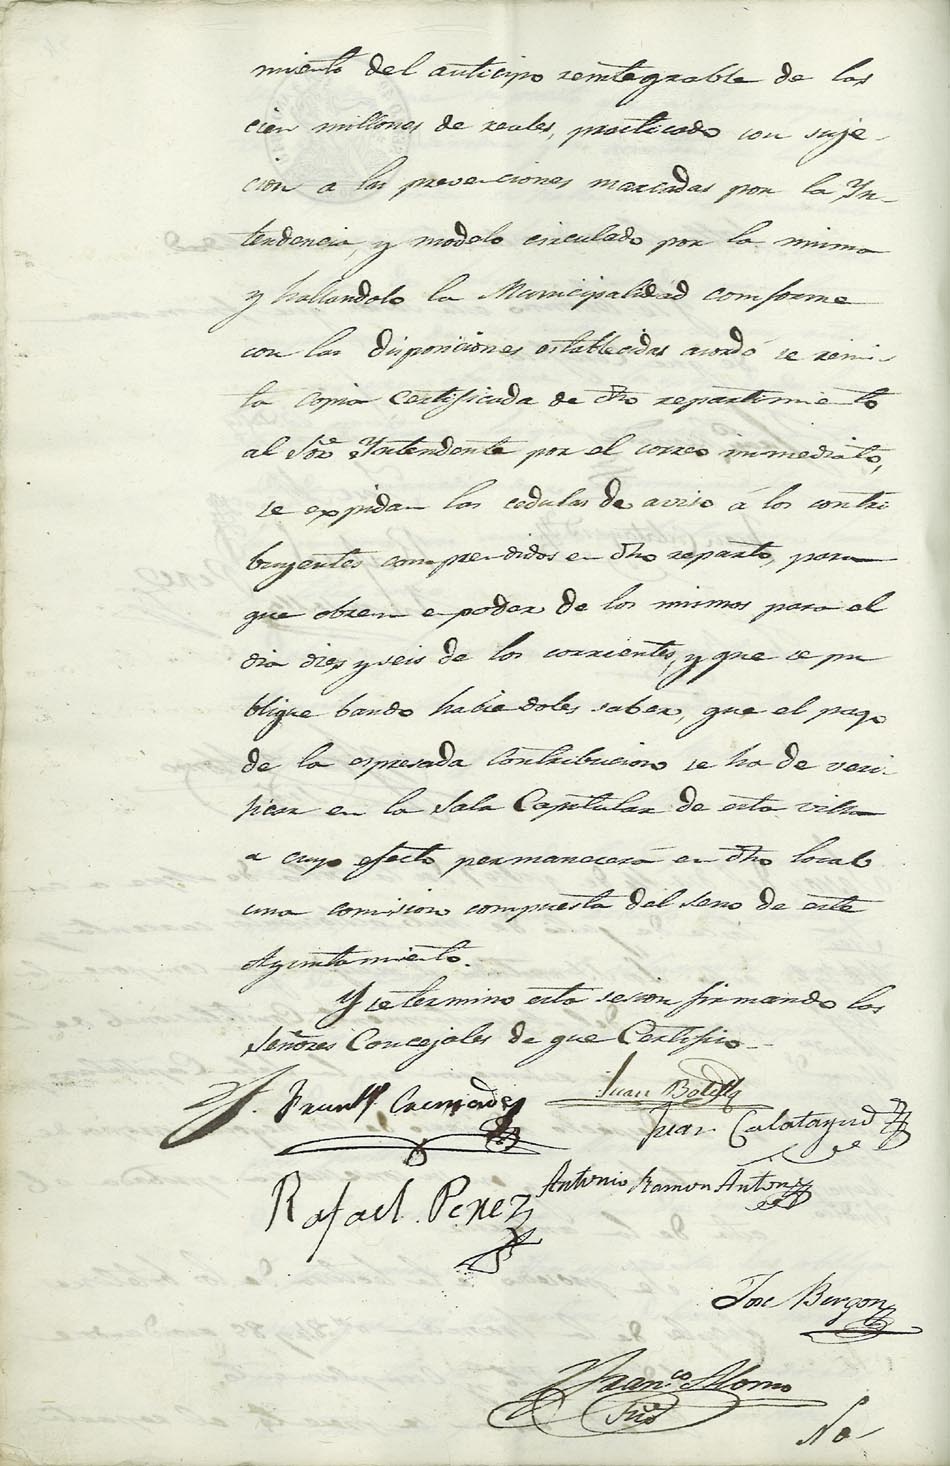 miento del anticipo reintegrable de los
cien millones de reales, practicado con suje-
cion a las prevenciones marcadas por la Yn-
tendencia, y modelo circulado por la misma
y hallandolo la Municipalidad comforme
con las disposiciones establecidas acordó se remi-
ta copia Certificada de dho repartimiento
al Sor. Yntendente por el correo immediato,
se expidan las cedulas de aviso á los contri
buyentes comprendidos en dho reparto, para
que obren en poder de los mismos para el
dia diez y seis de los corrientes, y que se pu
blique bando haciedoles saber, que el pago
de la espresada Contribucion se ha de veri-
ficar en la Sala Capitular de esta villa
a cuyo efecto permanecerá en dho local
una comision compuesta del seno de este
Ayuntamiento.
Y se termino esta sesion firmando los
Señores Concejales de que Certifico-
Juan Botella
Juan Calatayud
Rafael Perez
Antonio Ramon Anton
Jose
Franco. Alomo
Srio
No-